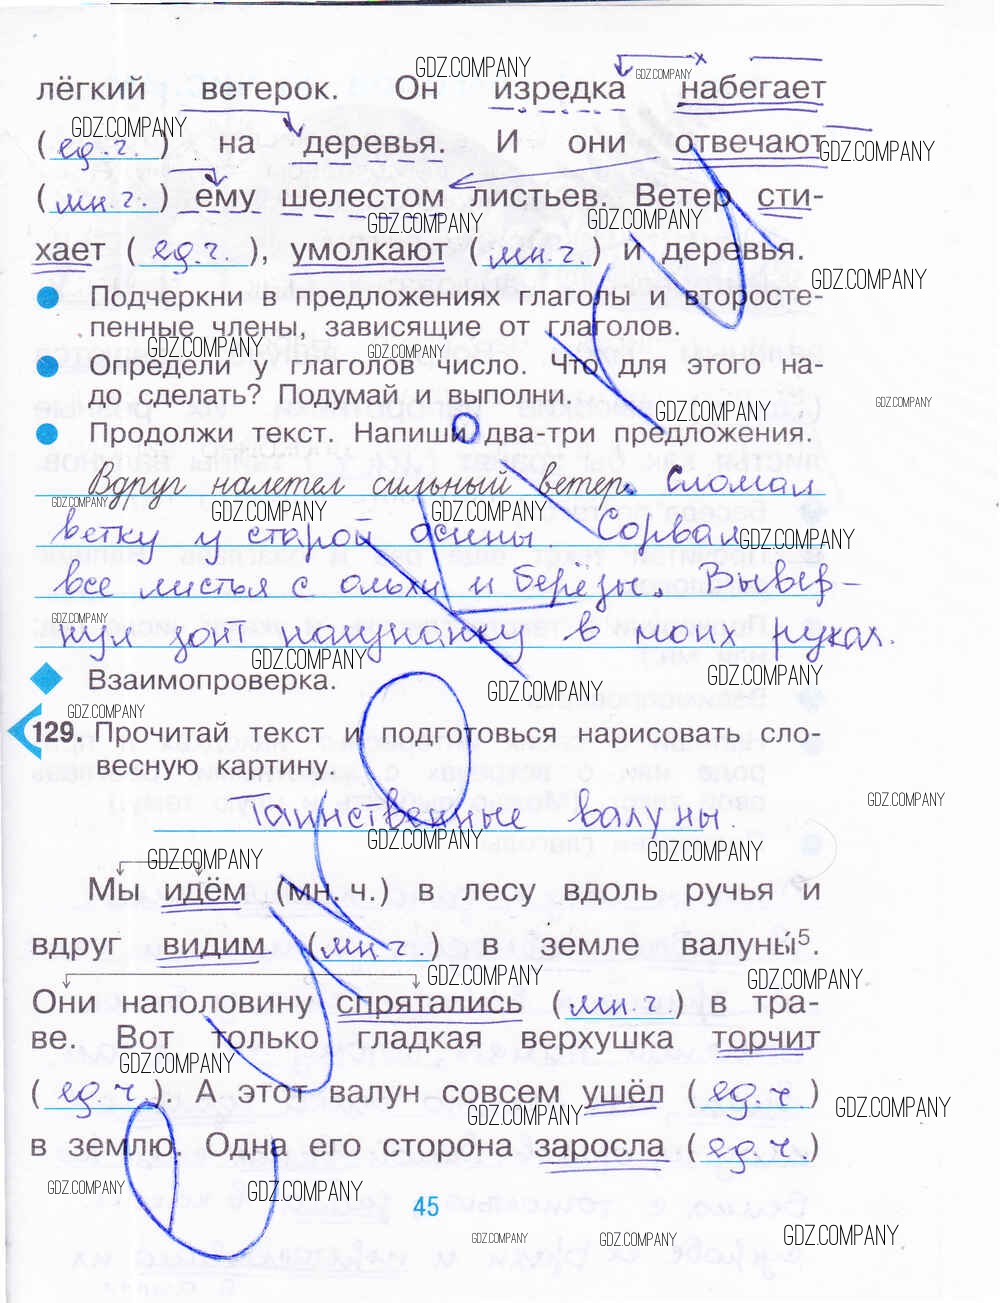 лёгкий ветерок. Он изредка набегает
(ед.ч.) на деревья. И они отвечают
(мн.ч.) ему шелестом листьев. Ветер сти-
хает (ед.ч.), умолкают (мн.ч.) и деревья.
Подчеркни в предложениях глаголы и второсте-
пенные члены, зависящие от глаголов.
Определи у глаголов число. Что для этого на-
до сделать? Подумай и выполни.
Продолжи текст. Напиши два-три предложения.
Вдруг налетел сильный ветер. Сломал
ветку у старой осины. Сорвал
все листья с ольхи и берёзы. Вывер-
нул зонт наизнанку в моих руках.
Взаимопроверка.
129. Прочитай текст и подготовься нарисовать сло-
весную картину.
Таинственные валуны.
Мы идём (мн. ч.) в лесу вдоль ручья и
вдруг видим (мн. ч.) в земле валуны⁵.
Они наполовину спрятались (мн. ч.) в тра-
ве. Вот только гладкая верхушка торчит
(ед.ч.). А этот валун совсем ушёл (ед.ч.)
в землю. Одна его сторона заросла (ед.ч.)
45
GDZ.COMPANY